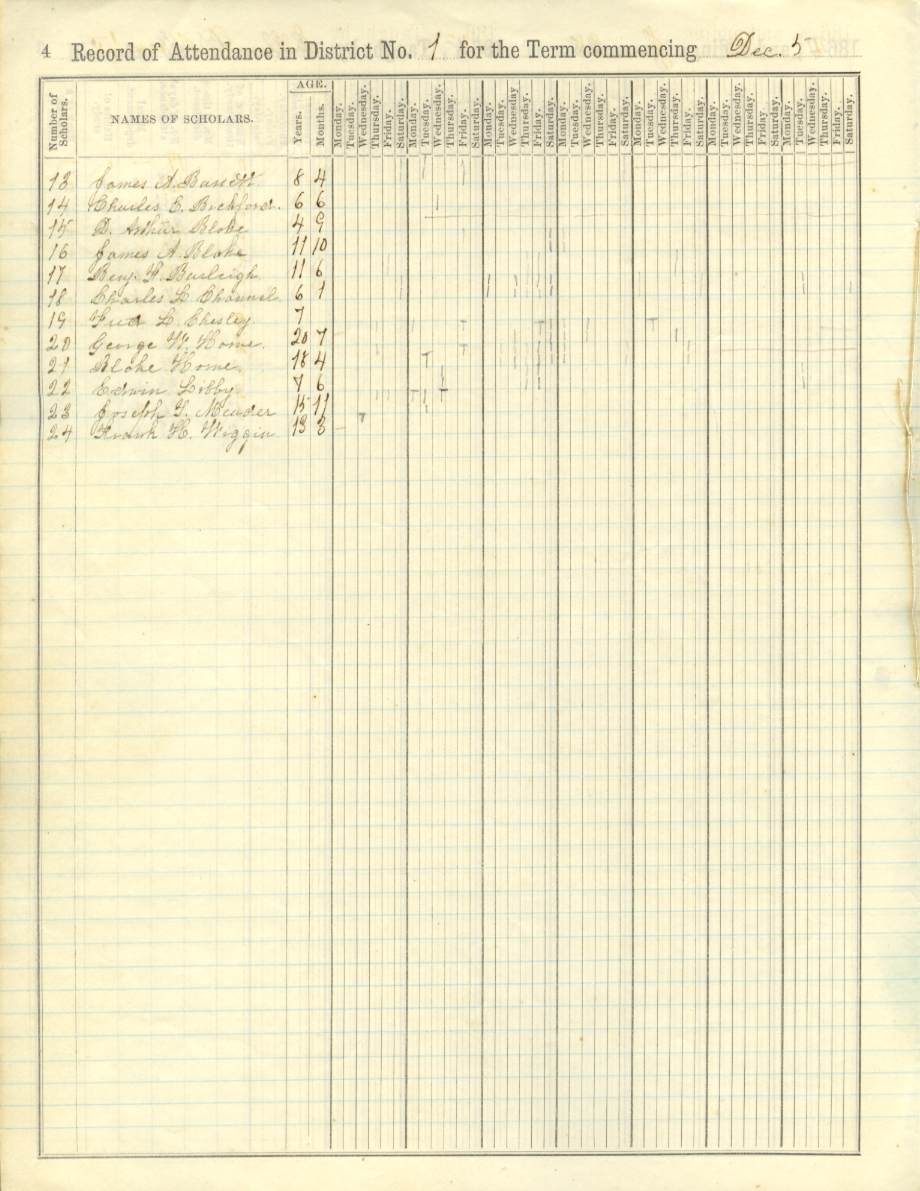 4 Record of Attendance in District No. 1 for the Term commencing Dec. 5
Number of Scholars. NAMES OF SCHOLARS. AGE. Years. Months. Monday. Tuesday. Wednesday. Thursday. Friday. Saturday. Monday. Tuesday. Wednesday. Thursday. Friday. Saturday. Monday. Tuesday. Wednesday Thursday. Friday. Saturday. Monday. Tuesday. Wednesday. Thursday. Friday. Saturday. Monday. Tuesday. Wednesday. Thursday. Friday. Saturday. Monday. Tuesday. Wednesday. Thursday. Friday Saturday. Monday. Tuesday. Wednesday. Thursday. Friday. Saturday.
13 James A. Bassett 8 4
14 Charles E. Bickford. 6 6
15 D. Arthur Blake 4 9
16 James A. Blake 11 10
17 Benj. F. Burleigh 11 6
18 Charles L. 6 1
19 L. Chesley. 7
20 George W. Horne. 20 7
21 Blake Horne. 18 4
22 Edwin Libby. 7 6
23 Joseph F. Meader 15 11
24 Frank H. Wiggin 13 3